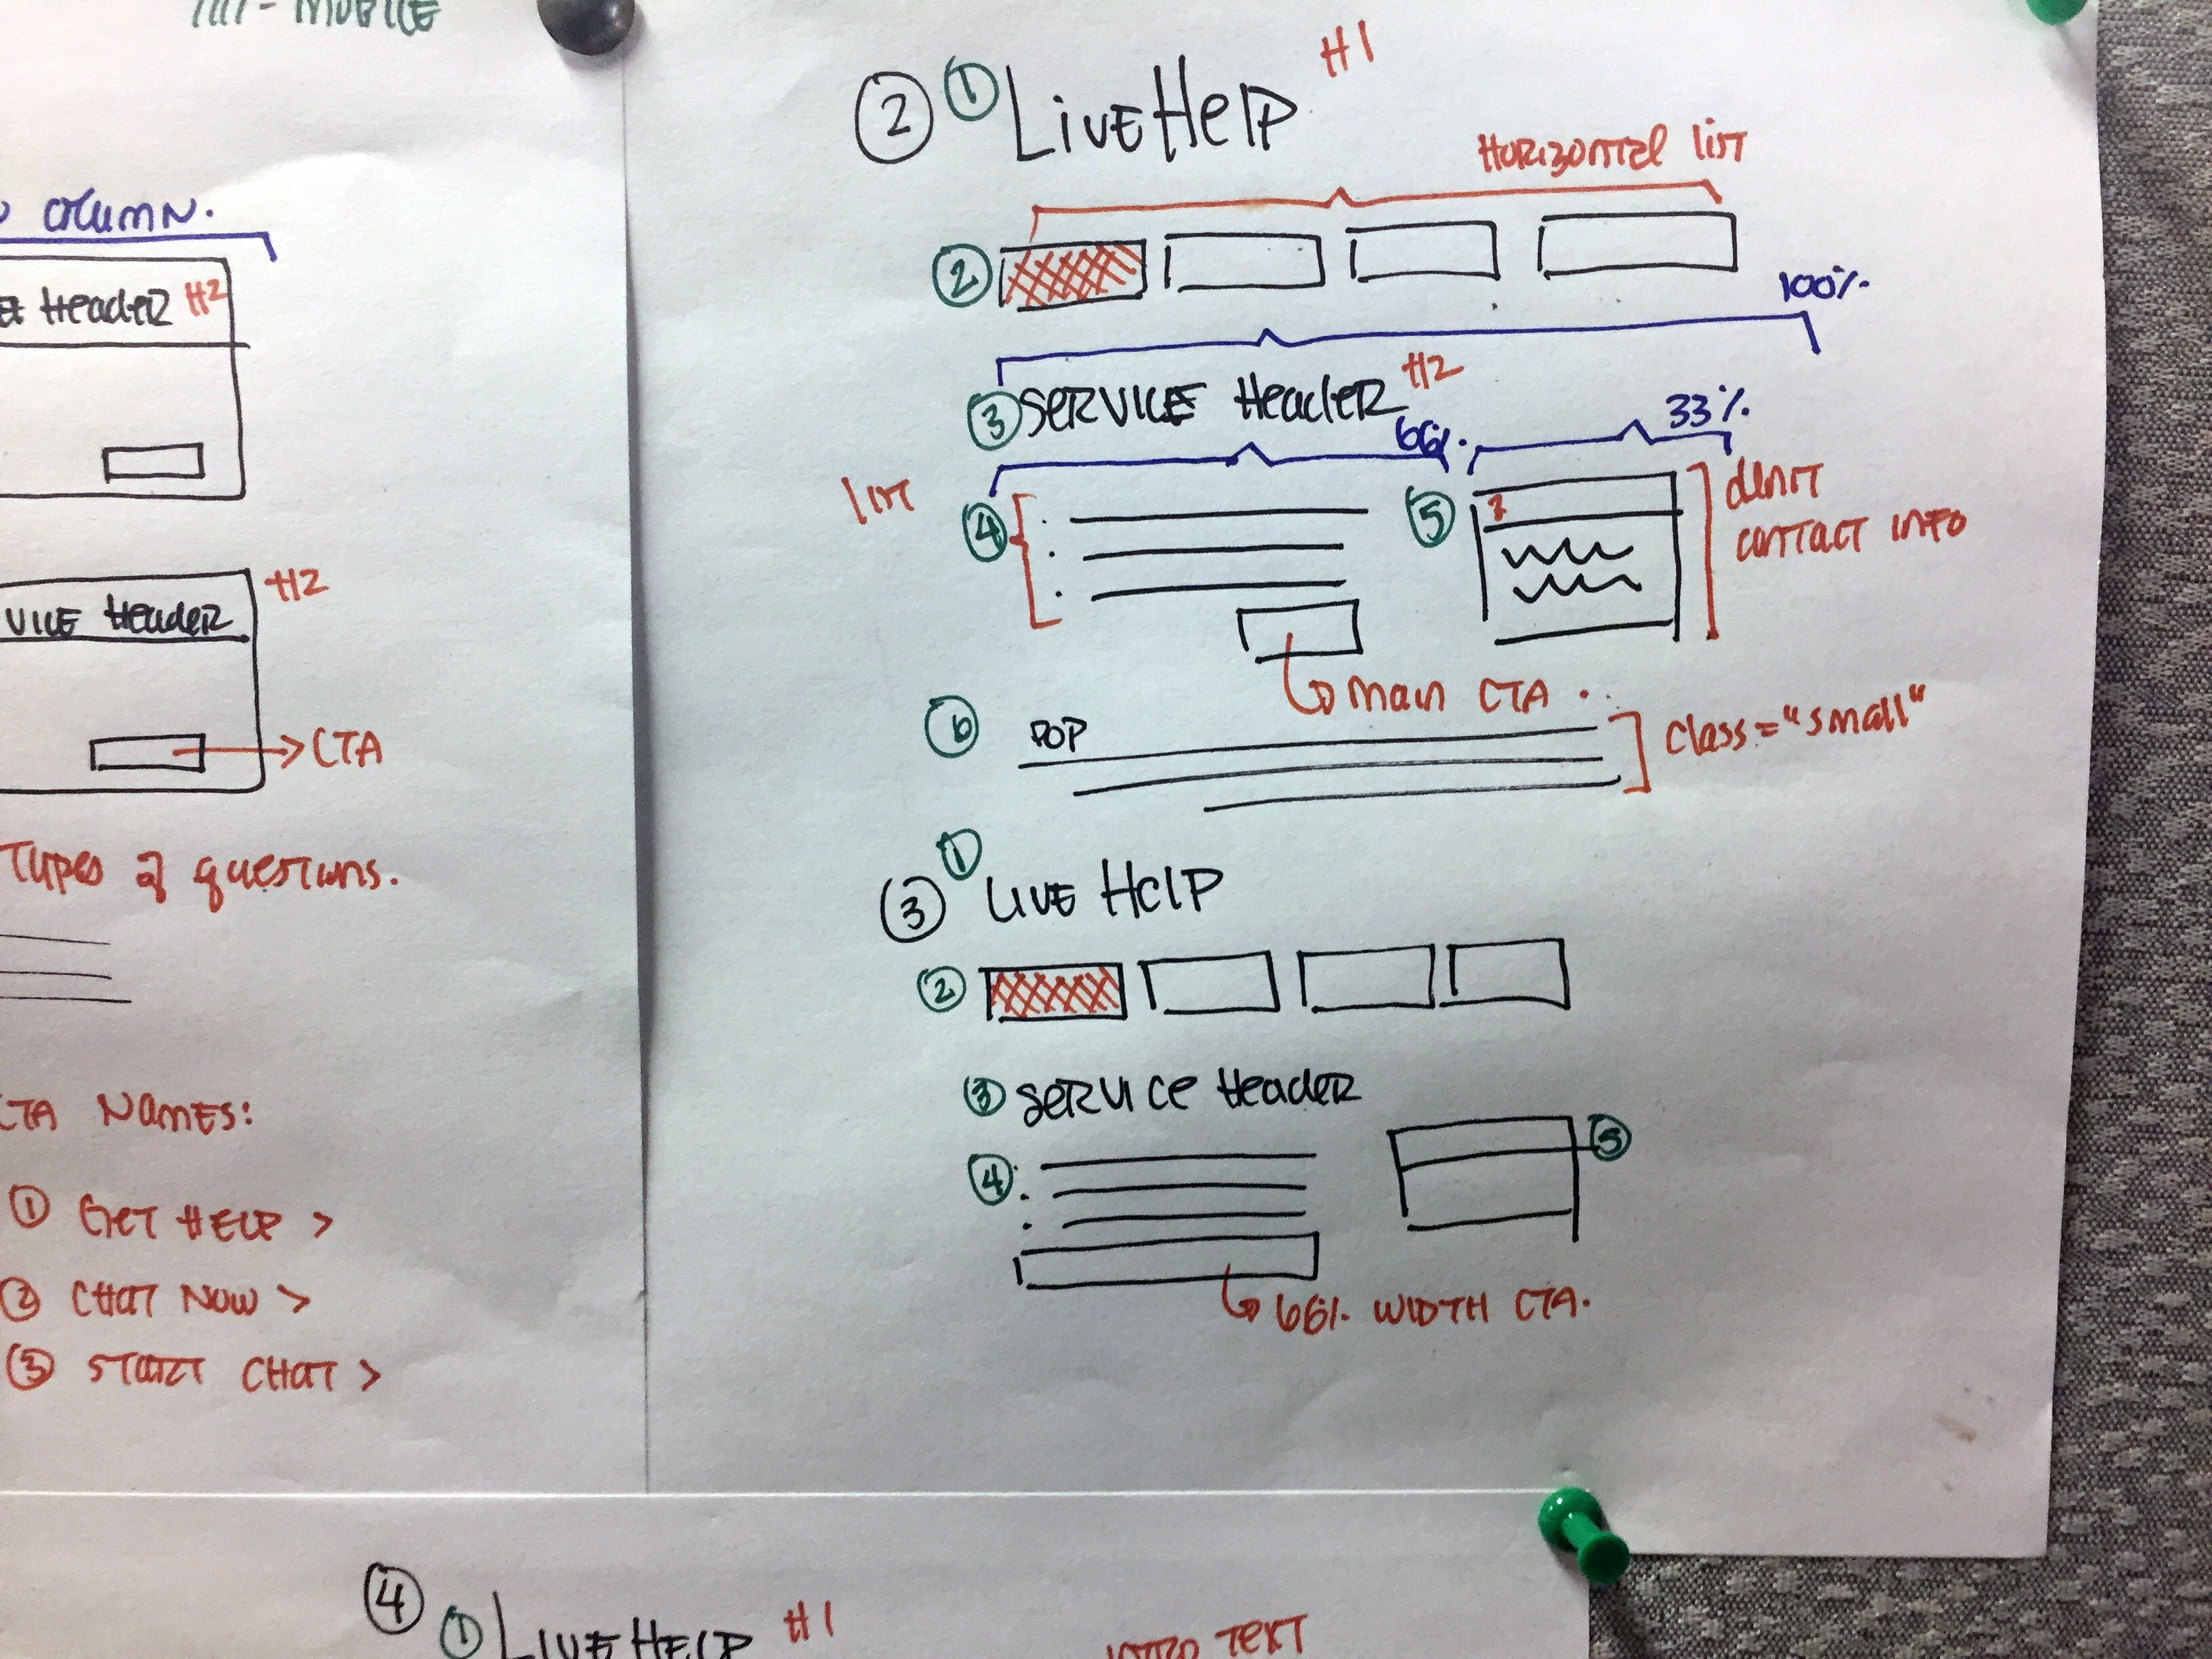 MOBILE
COLUMN.
Header H2
H2
VICE Header
CTA
Types of questions.
CTA Names:
① Get Help >
② Chat Now >
③ Start Chat >
② ① Live Help H1
Horizontal list
②
100%
③ Service Header H2
66%
33%
list
④
⑤
contact info
main CTA.
⑥ POP
class="small"
①
③ Live Help
②
③ Service Header
④
⑤
66% width CTA.
④ ① Live Help H1
intro text